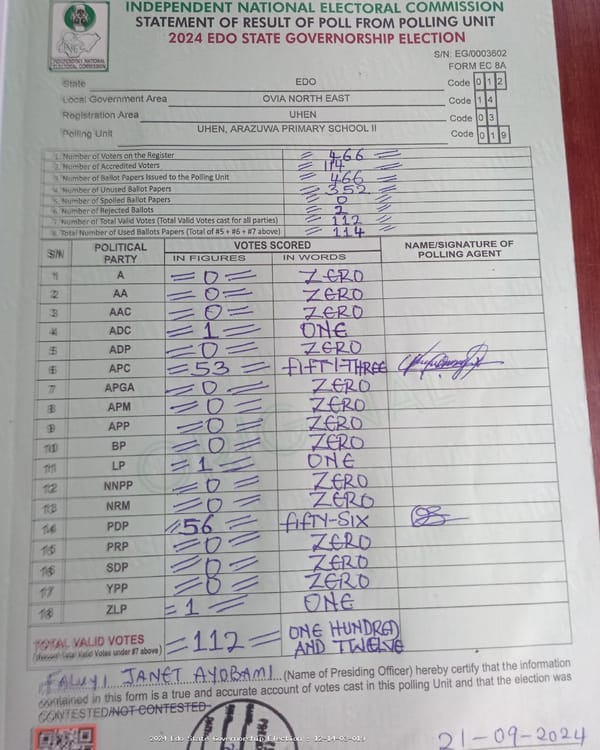 INDEPENDENT NATIONAL ELECTORAL COMMISSION
STATEMENT OF RESULT OF POLL FROM POLLING UNIT
2024 EDO STATE GOVERNORSHIP ELECTION
S/N: EG/0003602
FORM EC 8A
INDEPENDENT NATIONAL ELECTORAL COMMISSION
State EDO Code 0 1 2
Local Government Area OVIA NORTH EAST Code 1 4
Registration Area UHEN Code 0 3
Polling Unit UHEN, ARAZUWA PRIMARY SCHOOL II Code 0 1 9
1. Number of Voters on the Register = 466 =
2. Number of Accredited Voters = 114 =
3. Number of Ballot Papers Issued to the Polling Unit = 466 =
4. Number of Unused Ballot Papers = 352 =
5. Number of Spoiled Ballot Papers = 0 =
6. Number of Rejected Ballots = 2 =
7. Number of Total Valid Votes (Total Valid Votes cast for all parties) = 112 =
8. Total Number of Used Ballots Papers (Total of #5 + #6 + #7 above) = 114 =
S/N POLITICAL PARTY VOTES SCORED NAME/SIGNATURE OF POLLING AGENT
IN FIGURES IN WORDS
1 A = 0 = ZERO
2 AA = 0 = ZERO
3 AAC = 0 = ZERO
4 ADC = 1 = ONE
5 ADP = 0 = ZERO
6 APC = 53 = FIFTY-THREE
7 APGA = 0 = ZERO
8 APM = 0 = ZERO
9 APP = 0 = ZERO
10 BP = 0 = ZERO
11 LP = 1 = ONE
12 NNPP = 0 = ZERO
13 NRM = 0 = ZERO
14 PDP = 56 = FIFTY-SIX
15 PRP = 0 = ZERO
16 SDP = 0 = ZERO
17 YPP = 0 = ZERO
18 ZLP = 1 = ONE
TOTAL VALID VOTES = 112 = ONE HUNDRED AND TWELVE
Valid Votes under #7 above)
FALUYI JANET AYOBAMI (Name of Presiding Officer) hereby certify that the information
contained in this form is a true and accurate account of votes cast in this polling Unit and that the election was
CONTESTED/NOT CONTESTED
2024 Edo State Governorship Election - 12-14-03-019
21-09-2024